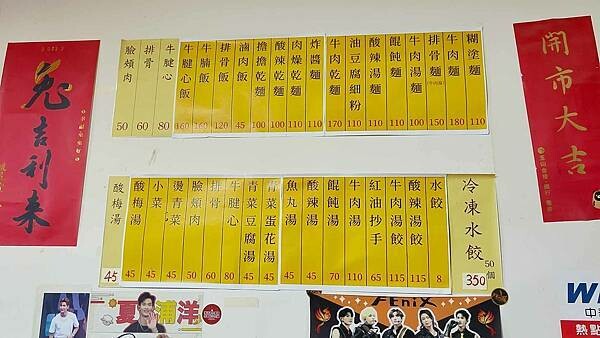 開市大吉
糊塗麵 110
牛肉麵 180
排骨麵 150
牛肉湯麵 100
餛飩麵 110
酸辣湯麵 110
油豆腐細粉 110
牛肉乾麵 170
炸醬麵 110
肉燥乾麵 110
酸辣乾麵 100
擔擔乾麵 100
滷肉飯 45
排骨飯 120
牛腩飯 160
牛腱心飯 160
牛腱心 80
排骨 60
臉頰肉 50
兔吉利来
冷凍水餃 50個 350
水餃 8
酸辣湯餃 115
牛肉湯餃 115
紅油抄手 65
牛肉湯 110
餛飩湯 70
酸辣湯 45
魚丸湯 45
青菜蛋花湯 45
青菜豆腐湯 45
牛腱心 80
排骨 60
臉頰肉 50
燙青菜 45
小菜 45
酸梅湯 45
酸梅湯 45
夏浦洋
FEniX
熱點